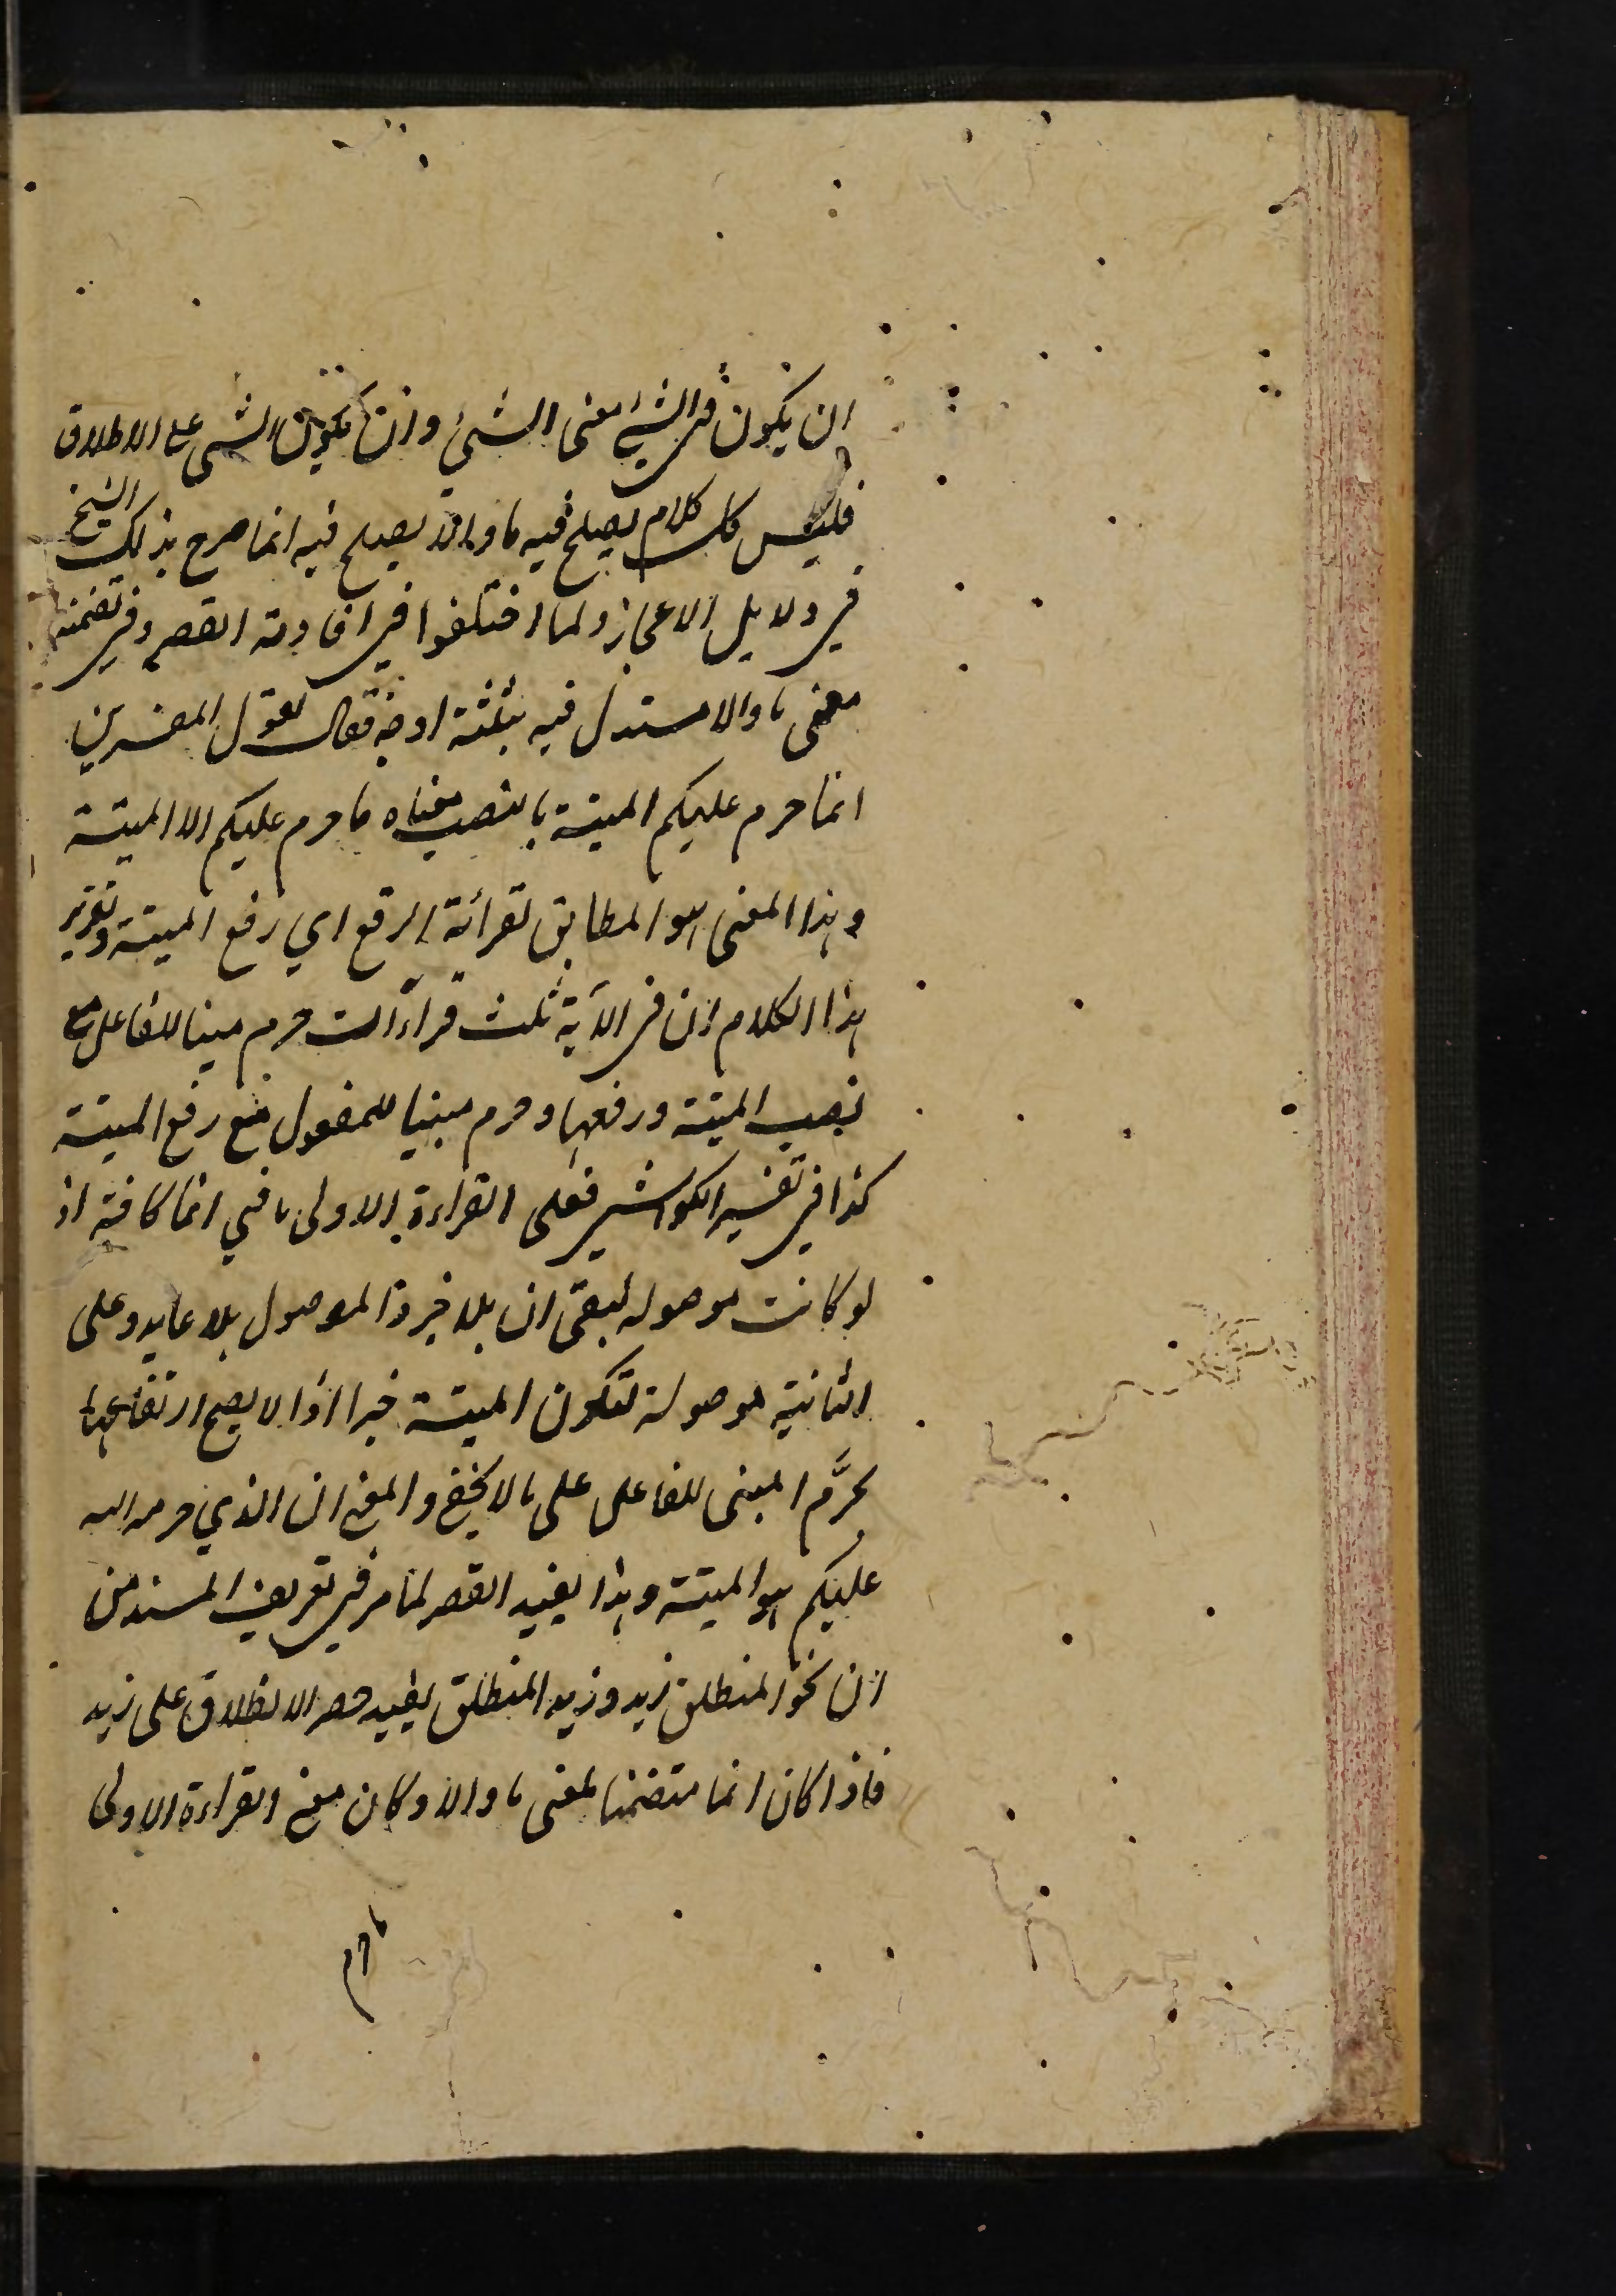 ان يكون في الشيئ معنى الشيئ وان يكون الشي على الاطلاق
فليس كل كلام يصلح فيه ما والا يصلح فيه انما صرح بذلك الشيخ
في دلايل الاعجاز ولما اختلفوا في افادته القصر وفي تضمنه
معنى ما والا استدل فيه بثلثة اوجه فقال لقول المفسرين
انما حرم عليكم الميتة بالنصب معناه ما حرم عليكم الا الميتة
وهذا المعنى هو المطابق لقرائة الرفع اي رفع الميتة وتقرير
هذا الكلام ان في الآية ثلث قراآت حرم مبنيا للفاعل مع
نصب الميتة ورفعها وحرم مبنيا للمفعول مع رفع الميتة
كذا في تفسير الكواشي فعلى القراءة الاولى ما في انما كافة اذ
لو كانت موصوله لبقى ان بلا خبر والموصول بلا عايد وعلى
الثانية موصولة لتكون الميتة خبرا اذ لا يصح ارتفاعها
بحرَّم المبنى للفاعل على ما لا يخفى والمعنى ان الذي حرمه الله
عليكم هو الميتة وهذا يفيد القصر لما مر في تعريف المسند من
ان نحو المنطلق زيد وزيد المنطلق يفيد حصر الانطلاق على زيد
فاذا كان انما متضمنا لمعنى ما والا وكان معنى القراءة الاولى
ما حرم